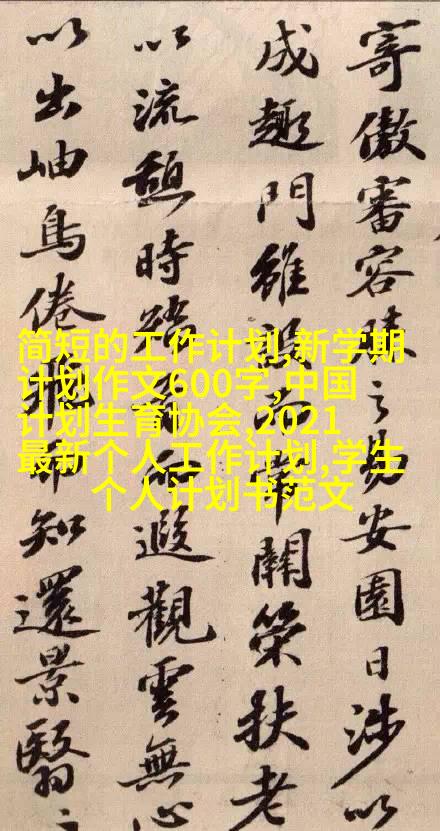 寄傲審容膝之易安園日涉以
成趣門雖設而常關策扶老
以流憩時矯首而遐觀雲無心
以出岫鳥倦飛而知還景翳
简短的工作计划,新学期
计划作文600字,中国
计划生育协会,2021
最新个人工作计划,学生
个人计划书范文